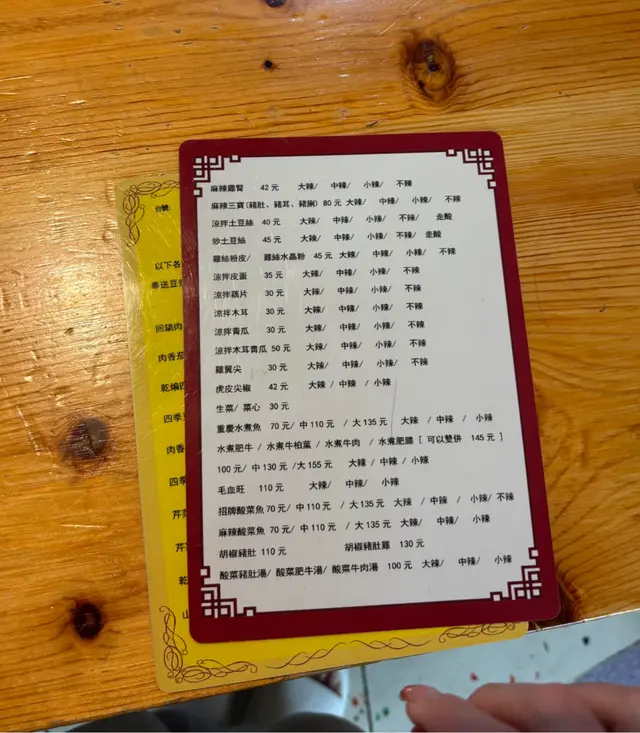 麻辣雞腎 42 元 大辣/ 中辣/ 小辣/ 不辣
麻辣三寶(豬肚、豬耳、豬脷) 80 元 大辣/ 中辣/ 小辣/ 不辣
涼拌土豆絲 40 元 大辣/ 中辣/ 小辣/ 不辣/ 走酸
炒土豆絲 45 元 大辣/ 中辣/ 小辣/ 不辣/ 走酸
雞絲粉皮/ 雞絲水晶粉 45 元 大辣/ 中辣/ 小辣/ 不辣
涼拌皮蛋 35 元 大辣/ 中辣/ 小辣/ 不辣
涼拌藕片 30 元 大辣/ 中辣/ 小辣/ 不辣
涼拌木耳 30 元 大辣/ 中辣/ 小辣/ 不辣
涼拌青瓜 30 元 大辣/ 中辣/ 小辣/ 不辣
涼拌木耳青瓜 50 元 大辣/ 中辣/ 小辣/ 不辣
雞翼尖 30 元 大辣/ 中辣/ 小辣/ 不辣
虎皮尖椒 42 元 大辣 / 中辣 / 小辣
生菜/ 菜心 30 元
重慶水煮魚 70元/ 中 110 元 / 大 135 元 大辣 / 中辣 / 小辣
水煮肥牛 / 水煮牛柏葉 / 水煮牛肉 / 水煮肥腸 [ 可以雙併 145 元 ]
100 元/ 中 130 元 /大 155 元 大辣 / 中辣 / 小辣
毛血旺 110 元 大辣/ 中辣/ 小辣
招牌酸菜魚 70 元/ 中 110 元 / 大 135 元 大辣 / 中辣 / 小辣/ 不辣
麻辣酸菜魚 70 元/ 中 110 元 / 大 135 元 大辣/ 中辣/ 小辣
胡椒豬肚 110 元 胡椒豬肚雞 130 元
酸菜豬肚湯/ 酸菜肥牛湯/ 酸菜牛肉湯 100 元 大辣/ 中辣/ 小辣
台號
以下各
奉送豆
回鍋肉
肉香茄
乾煸四
四季豆
肉香
四季
芹
芹
乾
山